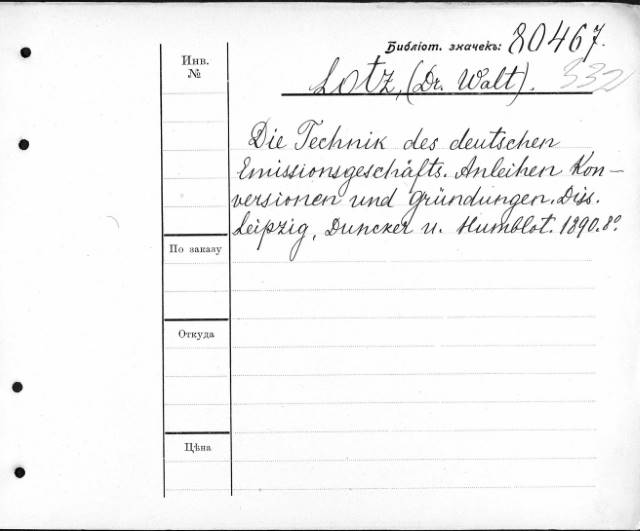 Библіот. значекъ: 80467.
Инв.
№
Lotz, (Dr. Walt). 332
Die Technik des deutschen
Emissionsgeschäfts. Anleihen Kon-
versionen und Gründungen. Diss.
Leipzig, Duncker u. Humblot. 1890. 8º
По заказу
Откуда
Цѣна